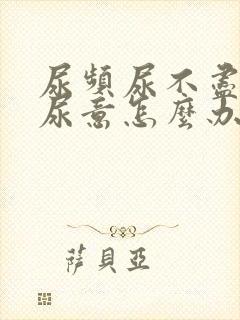 尿頻尿不盡
尿意怎麼办
薩貝亞